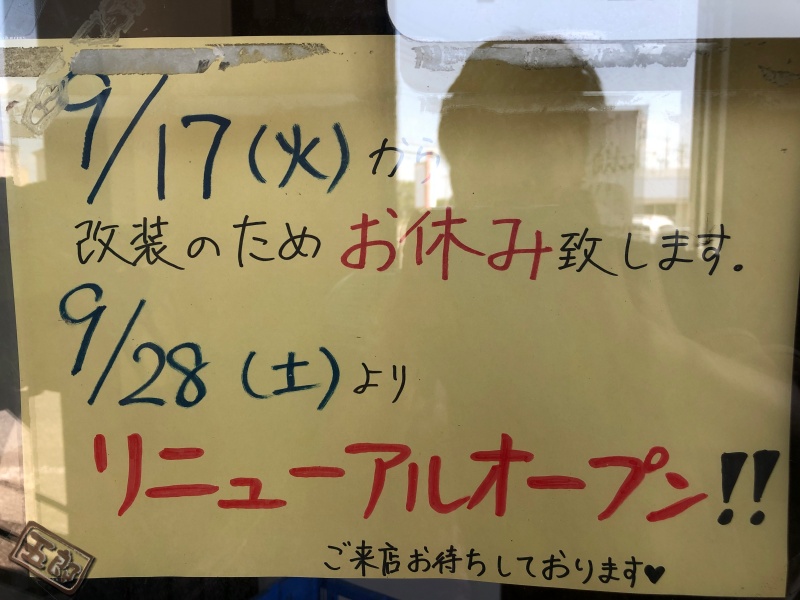 9/17(火)から
改装のためお休み致します。
9/28(土)より
リニューアルオープン!!
ご来店お待ちしております♥
五郎